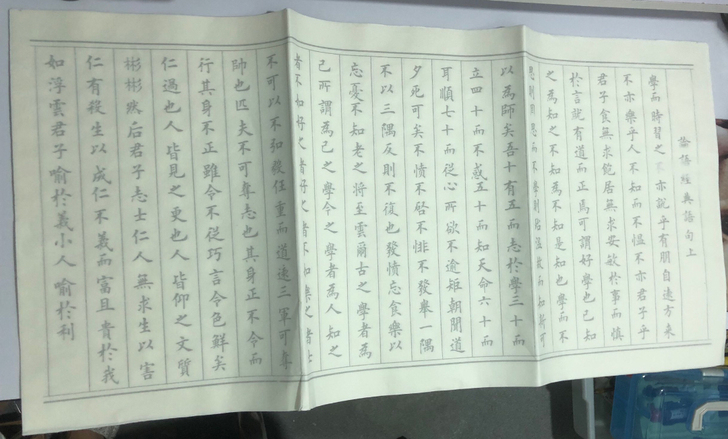 論語經典語句上
學而時習之亦說乎有朋自遠方來
不亦樂乎人不知而不慍不亦君子乎
君子食無求飽居無求安敏於事而慎
於言就有道而正焉可謂好學也已知
之為知之不知為不知是知也學而不
思則罔思而不學則殆溫故而知新可
以為師矣吾十有五而志於學三十而
立四十而不惑五十而知天命六十而
耳順七十而從心所欲不逾矩朝聞道
夕死可矣不憤不啓不悱不發舉一隅
不以三隅反則不復也發憤忘食樂以
忘憂不知老之將至雲爾古之學者為
己所謂為己之學今之學者為人知之
者不如好之者好之者不如樂之者士
不可以不弘毅任重而道遠三軍可奪
帥也匹夫不可奪志也其身正不令而
行其身不正雖令不從巧言令色鮮矣
仁過也人皆見之更也人皆仰之文質
彬彬然后君子志士仁人無求生以害
仁有殺生以成仁不義而富且貴於我
如浮雲君子喻於義小人喻於利